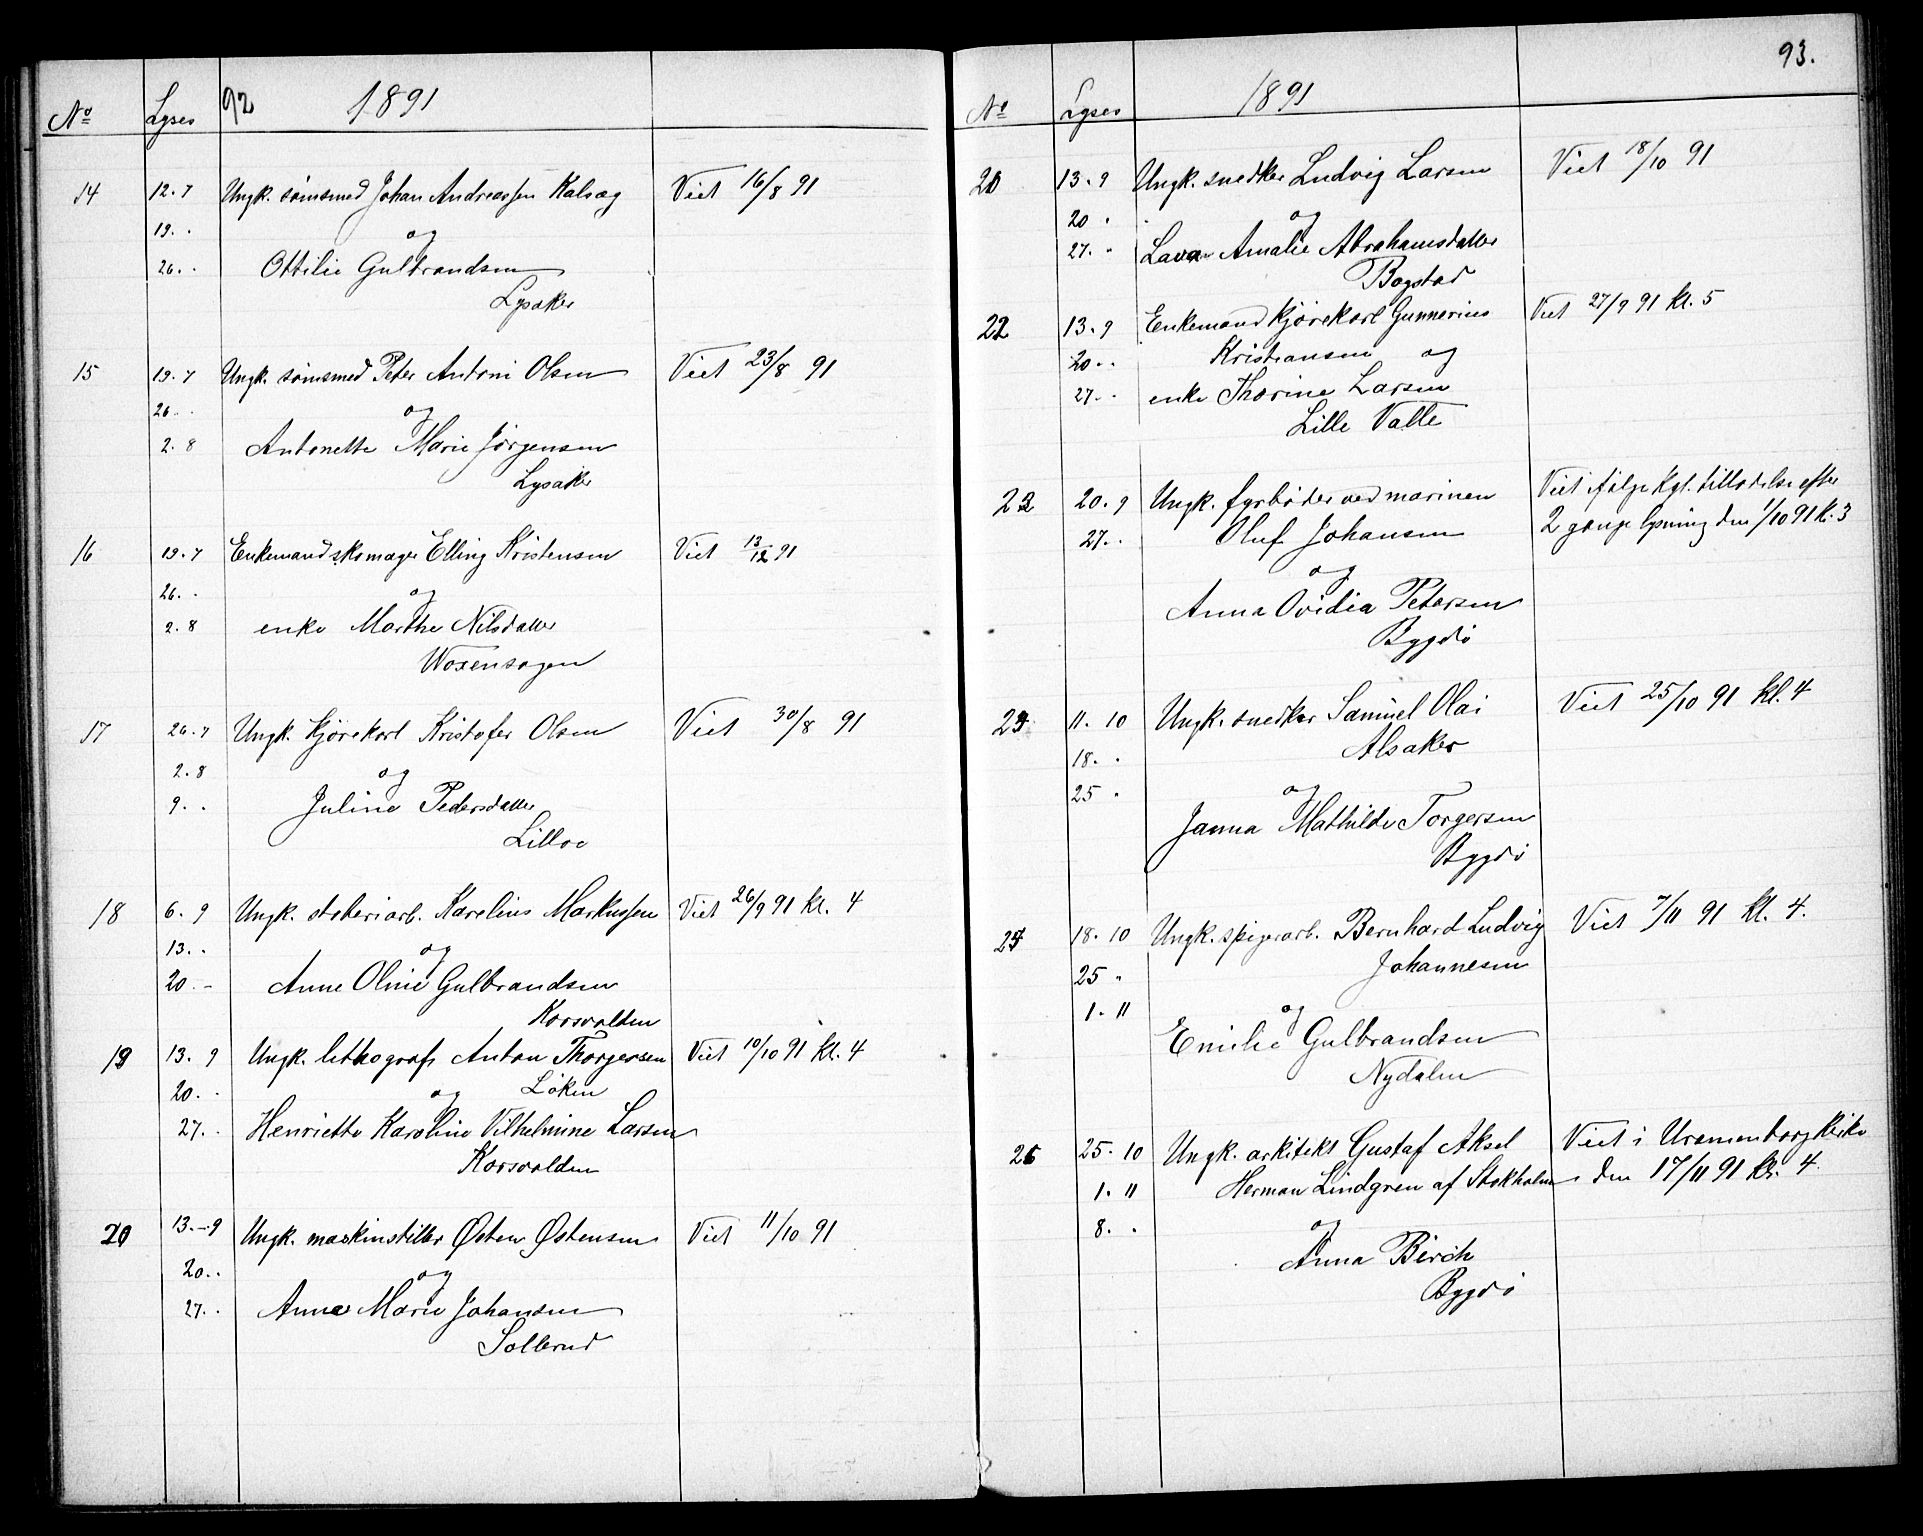 92
1891
No Lyses
14 12.7 Ungk. sömsmed Johan Andreassen Kalvag Viet 16/8 91
19. . og
26. . Ottilie Gulbrandsen
Lysaker
15 19.7 Ungk. sömsmed Peter Antoni Olsen Viet 23/8 91
26. . og
2. 8 Antonette Marie Jörgensen
Lysaker
16 19.7 Enkemand skomager Elling Kristensen Viet 13/12 91
26. . og
2. 8 enke Marthe Nilsdatter
Woxensagen
17 26.7 Ungk. kjörekarl Kristofer Olsen Viet 30/8 91
2. 8 og
9. . Juline Pedersdatter
Lilloe
18 6. 9 Ungk. støberiarb. Karelius Markussen Viet 26/9 91 kl. 4
13. . og
20 . Anne Oline Gulbrandsen
Korsvolden
19 13. 9 Ungk. lithograf Anton Thorgersen Viet 10/10 91 kl. 4
20. . og Löken
27. . Henriette Karoline Vilhelmine Larsen
Korsvolden
20 13. 9 Ungk. maskinstiller Østen Østensen Viet 11/10 91
20. . og
27. . Anne Marie Johansen
Sollerud
93.
1891
No Lyses
13. 9 Ungk. snedker Ludvig Larsen Viet 18/10 91
20 . og
27. . Amalie Abrahamsdatter
Bogstad
22 13. 9 Enkemand kjörekarl Gunnerius Viet 27/9 91 kl. 5
20. . Kristiansen og
27. . enke Thorine Larsen
Lille Valle
20. 9 Ungk. fyrböder ved marinen Viet ifölge kgl. tilladelse efter
27. . Oluf Johansen 2 gange lysning den 1/10 91 k. 3
og
Anna Ovidia Petersen
Bygdö
11. 10 Ungk. snedker Samuel Olai Viet 25/10 91 kl. 4
18. . Alsaker
25 . og
Janna Mathilde Torgersen
Bygdö
18. 10 Ungk. spigerarb. Bernhard Ludvig Viet 7/11 91 kl. 4.
25 . Johannesen
1. 11 og
Emilie Gulbrandsen
Nydalen
26 25. 10 Ungk. arkitekt Gustaf Aksel Viet i Uranienborg Kirke
1. 11 Herman Lindgren af Stokholm den 17/11 91 kl. 4.
8. . og
Anna Birch
Bygdö